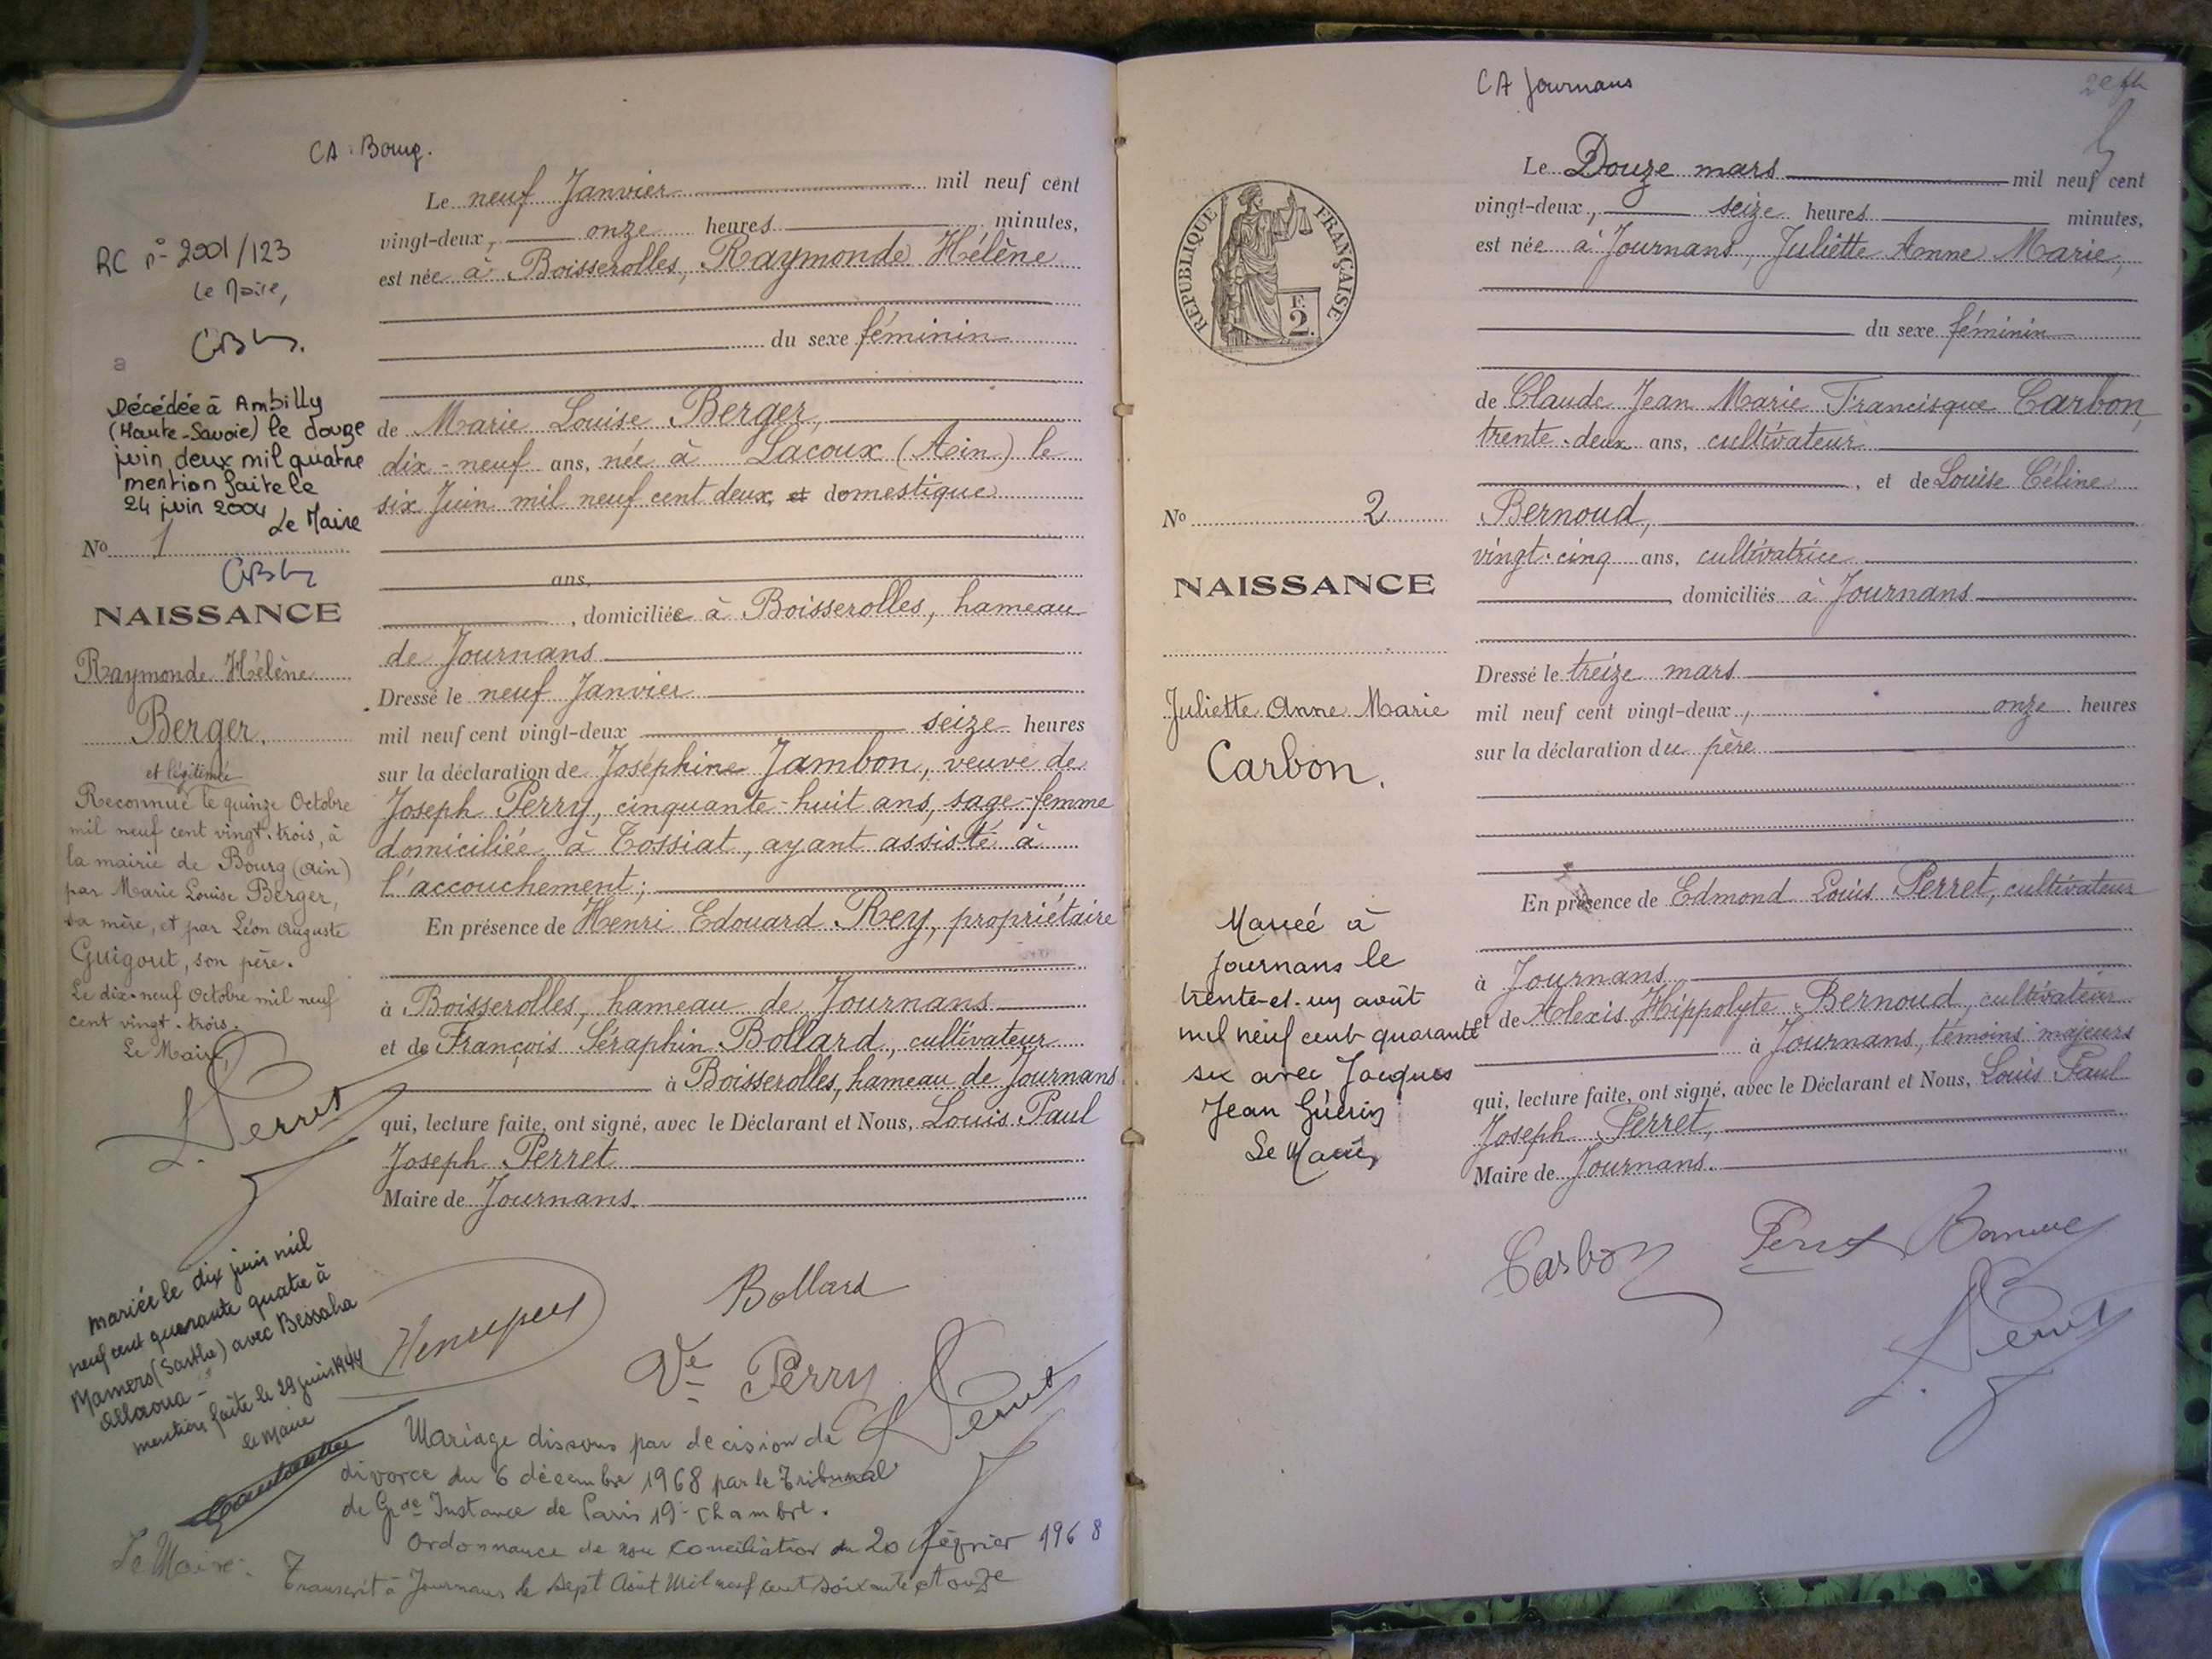 CA : Bourg.
RC n° 2001/123
Le Maire,
Décédée à Ambilly
(Haute-Savoie) le douze
juin deux mil quatre
mention faite le
24 juin 2004
Le Maire
No 1
NAISSANCE
Raymonde Hélène
Berger.
et légitimé
Reconnue le quinze Octobre
mil neuf cent vingt-trois, à
la mairie de Bourg (Ain)
par Marie Louise Berger,
sa mère, et par Léon Auguste
Guigout, son père.
Le dix-neuf Octobre mil neuf
cent vingt-trois.
Le Maire,
L. Perret
mariée le dix juin mil
neuf cent quarante quatre à
Mamers (Sarthe) avec Bessaha
Allaoua -
mention faite le 29 juin 1944
le Maire
Le neuf Janvier mil neuf cent
vingt-deux, onze heures minutes,
est née à Boisserolles, Raymonde Hélène
du sexe féminin
de Marie Louise Berger,
dix-neuf ans, née à Lacoux (Ain) le
six Juin mil neuf cent deux, et domestique
ans,
, domiciliée à Boisserolles, hameau
de Journans
Dressé le neuf Janvier
mil neuf cent vingt-deux seize heures
sur la déclaration de Joséphine Jambon, veuve de
Joseph Perry, cinquante-huit ans, sage-femme
domiciliée à Tossiat, ayant assisté à
l'accouchement ;
En présence de Henri Edouard Rey, propriétaire
à Boisserolles, hameau de Journans
et de François Séraphin Bollard, cultivateur
à Boisserolles, hameau de Journans
qui, lecture faite, ont signé, avec le Déclarant et Nous, Louis Paul
Joseph Perret
Maire de Journans.
Bollard
Ve Perry
L. Perret
Mariage dissous par decision de
divorce du 6 décembre 1968 par le Tribunal
de Gde Instance de Paris 19e chambre.
Ordonnance de non conciliation du 20 février 1968
Le Maire. Transcrit à Journans le sept Août Mil neuf cent soixante et onze
CA Journans
Le Douze mars mil neuf cent
vingt-deux, seize heures minutes,
est née à Journans, Juliette Anne Marie,
du sexe féminin
de Claude Jean Marie Francisque Carbon,
trente-deux ans, cultivateur
, et de Louise Céline
Bernoud,
vingt-cinq ans, cultivatrice
domiciliés à Journans
Dressé le treize mars
mil neuf cent vingt-deux, onze heures
sur la déclaration du père
En présence de Edmond Louis Perret, cultivateur
à Journans,
et de Alexis Hippolyte Bernoud, cultivateur
à Journans, témoins majeurs
qui, lecture faite, ont signé, avec le Déclarant et Nous, Louis Paul
Joseph Perret,
Maire de Journans.
Carbon Perret
L. Perret
RÉPUBLIQUE FRANÇAISE
F.
2.
No 2
NAISSANCE
Juliette Anne Marie
Carbon.
Mariée à
Journans le
trente-et-un août
mil neuf cent quarante
six avec Jacques
Jean Guérin
Le Maire